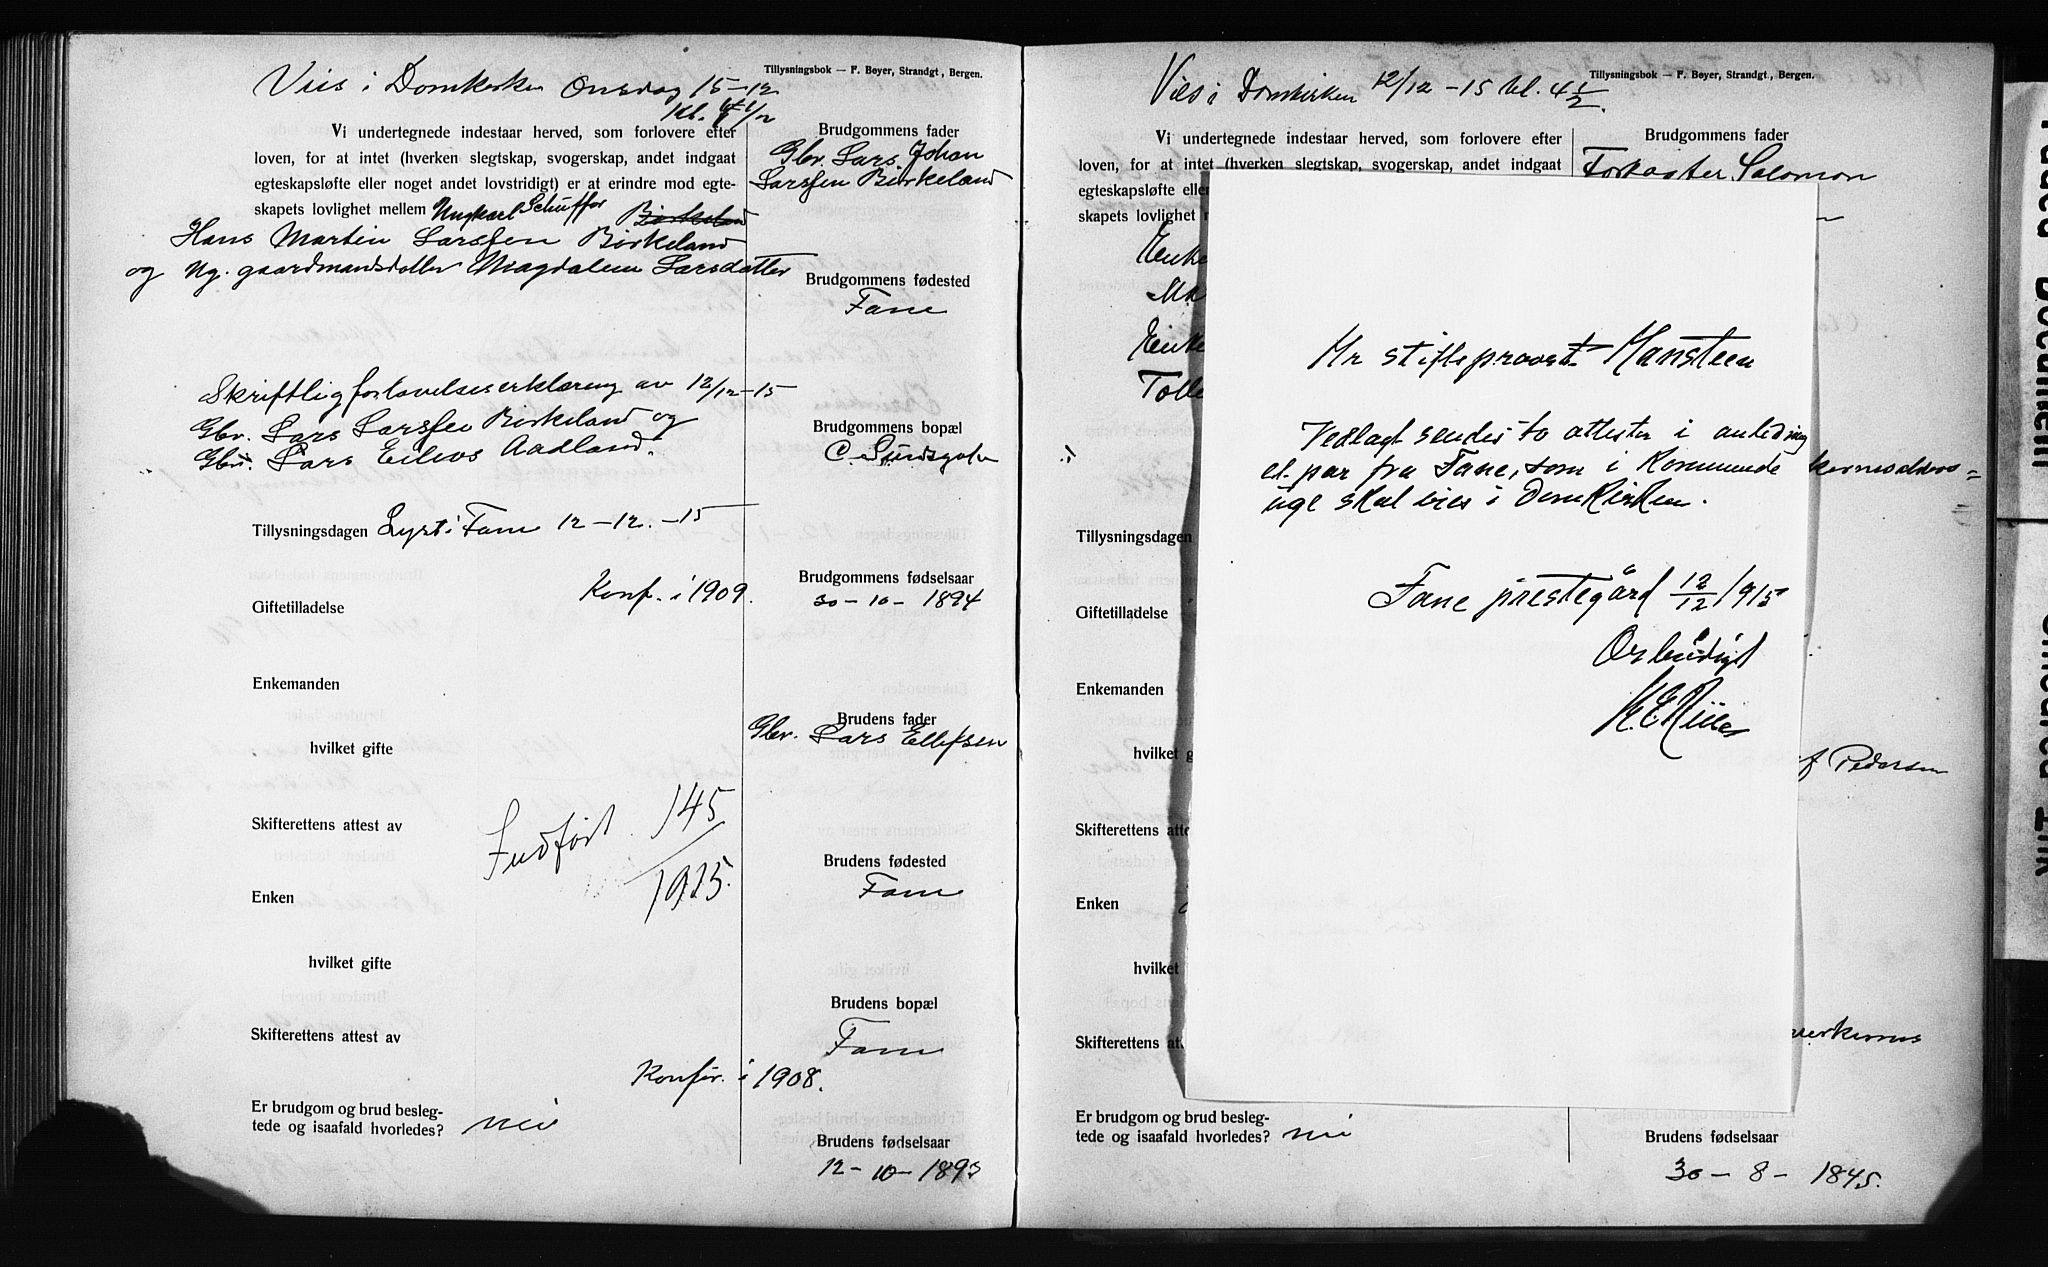 Tillysningsbok — F. Beyer, Strandgt., Bergen.
Vies i Domkirken Onsdag 15-12
kl. 4 1/2
Vi undertegnede indestaar herved, som forlovere efter
loven, for at intet (hverken slegtskap, svogerskap, andet indgaat
egteskapsløfte eller noget andet lovstridigt) er at erindre mod egte-
skapets lovlighet mellem Ungkarl Schuffør Birkeland
Hans Martin Larssen Birkeland
og Ug. gaardmandsdatter Magdalene Larsdatter
Skriftlig forlovelseserklæring av 12/12-15
Gbr. Lars Larssen Birkeland og
Gbr. Lars Eilevs Aadland.
Tillysningsdagen Lyst i Fane 12-12-15
Konf. i 1909.
Giftetilladelse
Enkemanden
hvilket gifte
Skifterettens attest av
Indført 145
1915.
Enken
hvilket gifte
Skifterettens attest av
Konfir. i 1908.
Er brudgom og brud besleg-
tede og isaafald hvorledes? nei
Brudgommens fader
Gbr. Lars Johan
Larssen Birkeland
Brudgommens fødested
Fane
Brudgommens bopæl
C. Sundsgate
Brudgommens fødselsaar
30-10-1894
Brudens fader
Gbr. Lars Ellefsen
Brudens fødested
Fane
Brudens bopæl
Fane
Brudens fødselsaar
12-10-1893
Tillysningsbok — F. Beyer, Strandgt., Bergen.
Vies i Domkirken 12/12-15 kl. 4 1/2.
Vi undertegnede indestaar herved, som forlovere efter
loven, for at intet (hverken slegtskap, svogerskap, andet indgaat
egteskapsløfte elle
skapets lovlighet
Enke
Ma
Enke
Tolle
Tillysningsdagen
Giftetilladelse
Enkemanden
hvilket g
Skifterettens atte
Enken
hvilket
Skifterettens at
Er brudgom og brud besleg-
tede og isaafald hvorledes? nei
Brudgommens fader
Salomon
f Pedersen
Brudens fødselsaar
30-8-1845.
Hr stiftsprovst Hansteen
Vedlagt sendes to attester i anledning
et par fra Fane, som i kommende
uge skal vies i Domkirken.
Fane prestegård 12/12 1915
Ærbødigst